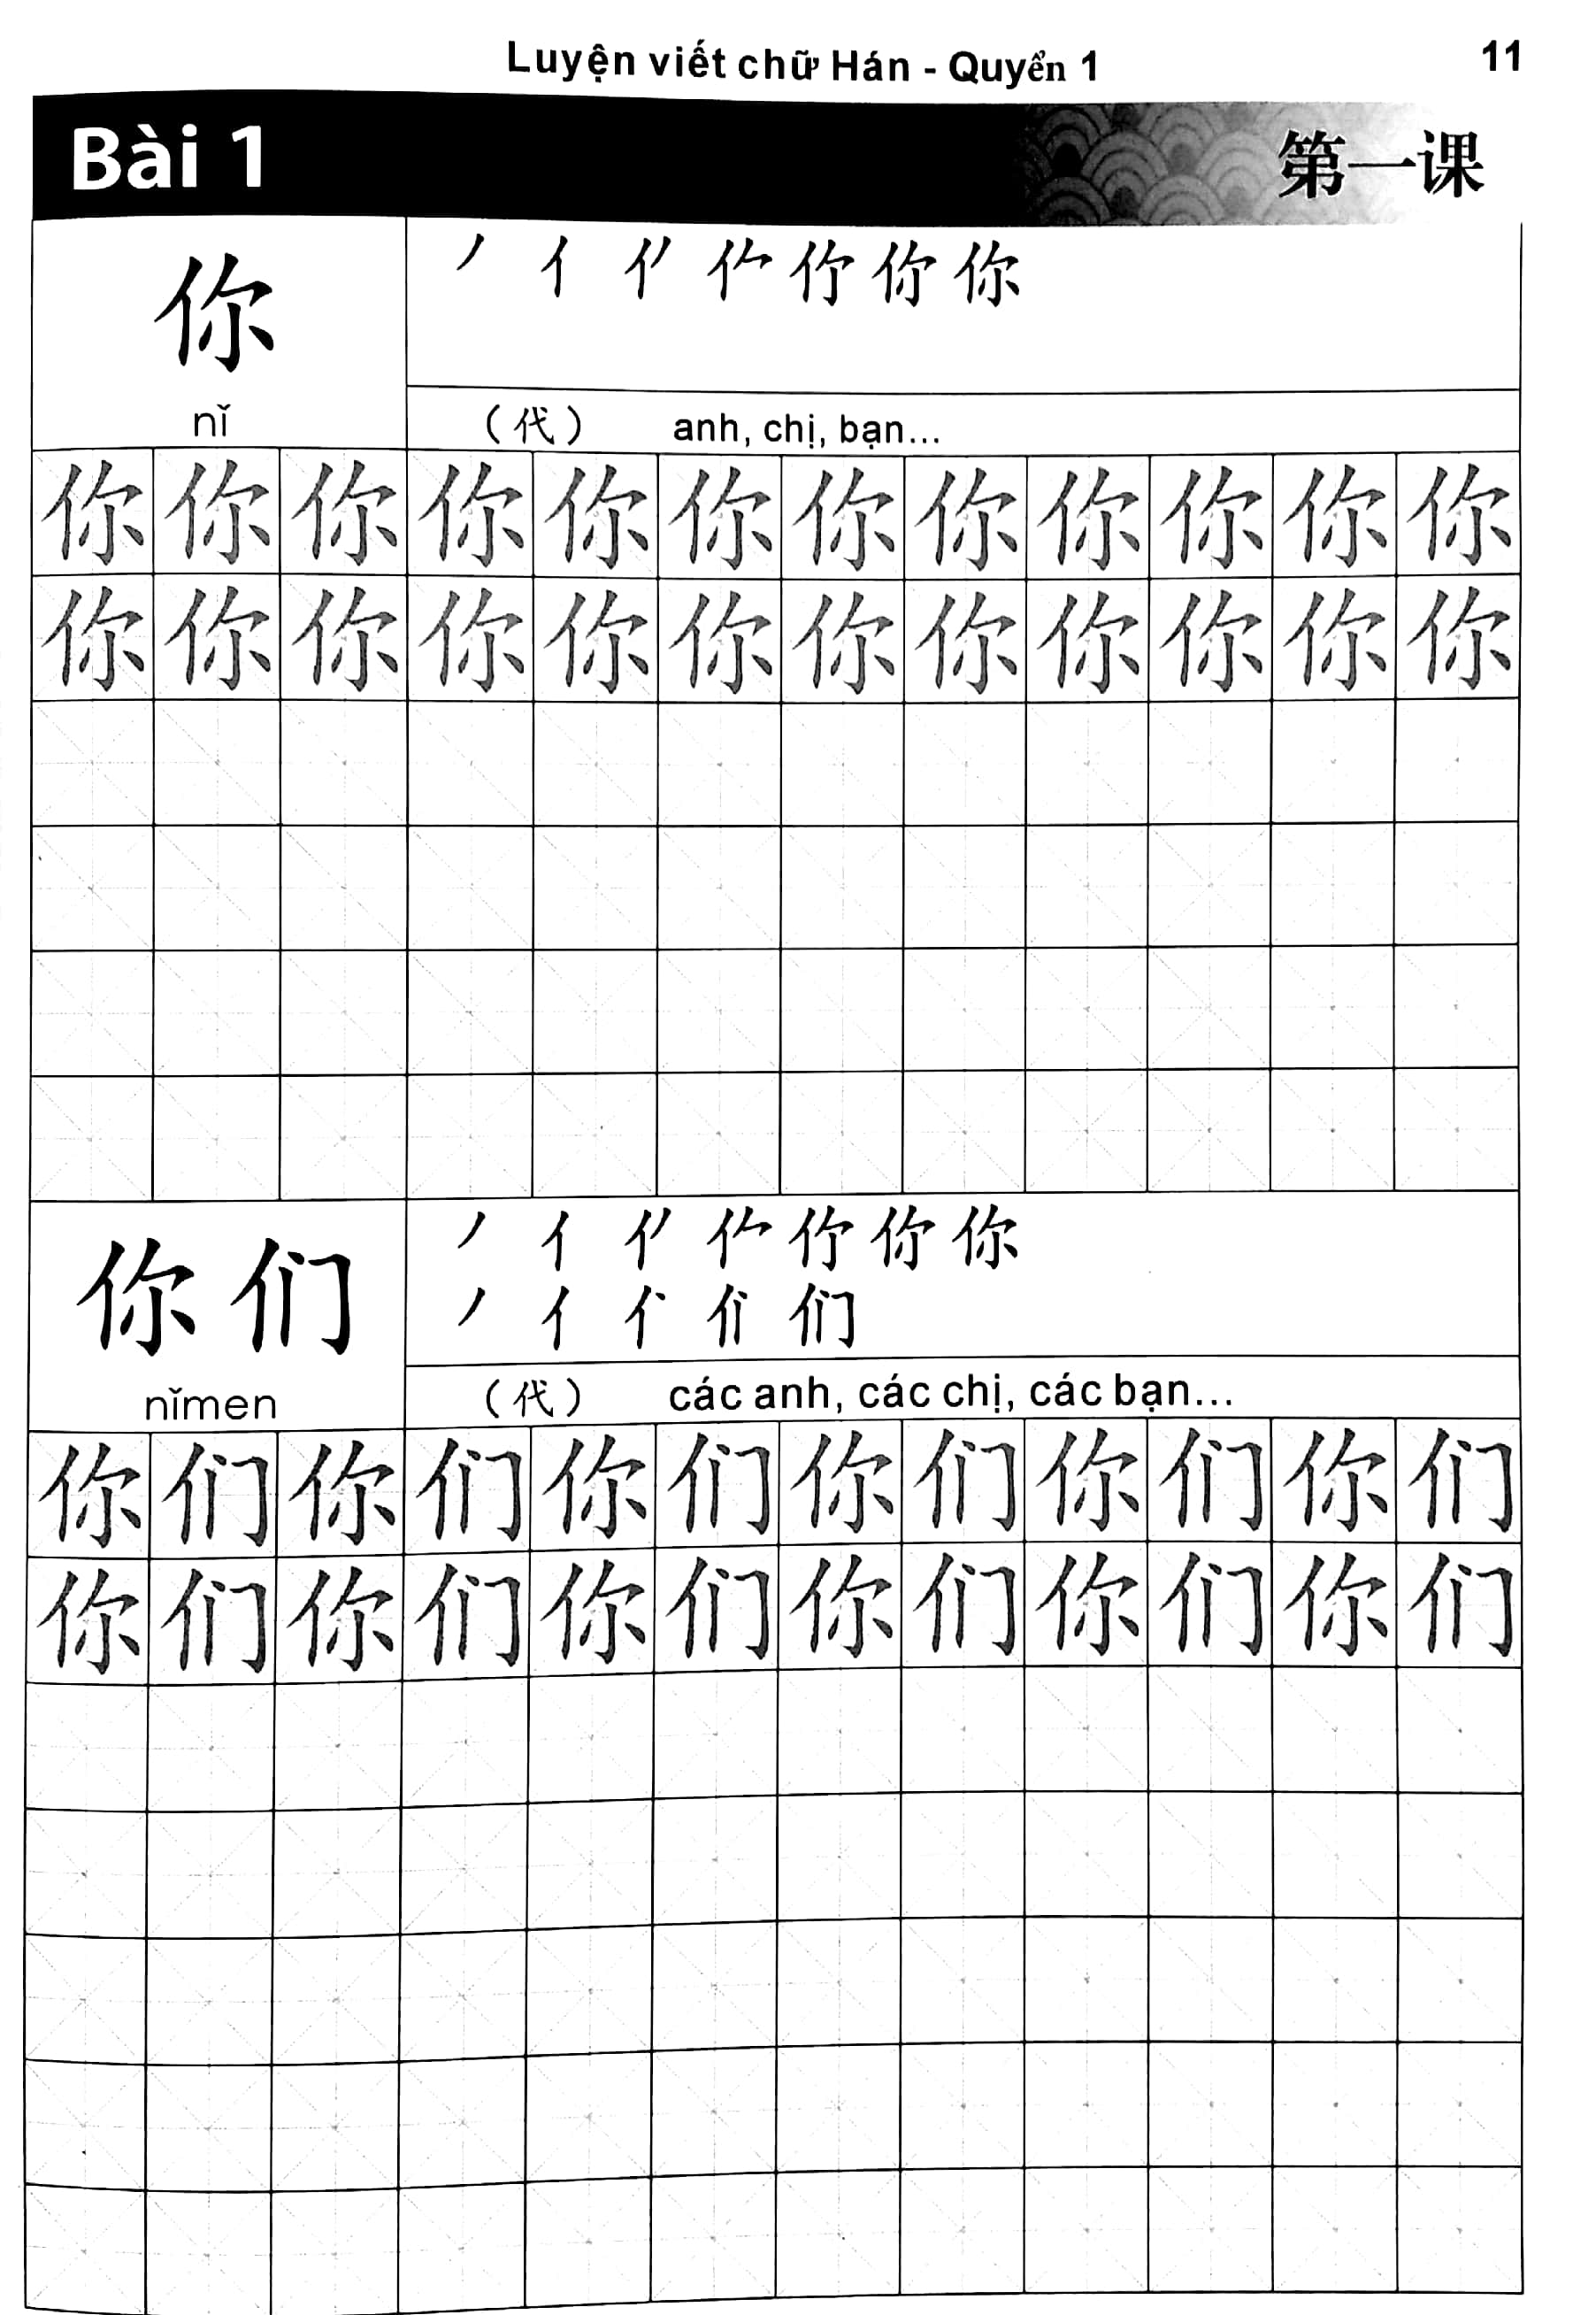 Luyện viết chữ Hán - Quyển 1 11
Bài 1 第一课
你
nǐ
(代) anh, chị, bạn...
你 你 你 你 你 你 你 你 你 你 你 你
你 你 你 你 你 你 你 你 你 你 你 你
你
你们
nǐmen
你
们
(代) các anh, các chị, các bạn...
你 们 你 们 你 们 你 们 你 们 你 们
你 们 你 们 你 们 你 们 你 们 你 们